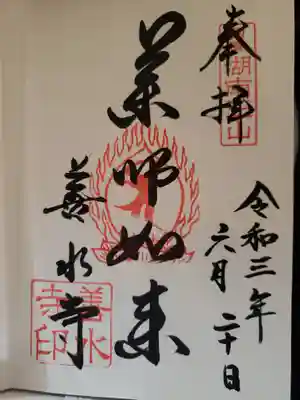 奉拝
令和三年
六月二十日
薬師如来
善水寺
善水
寺印